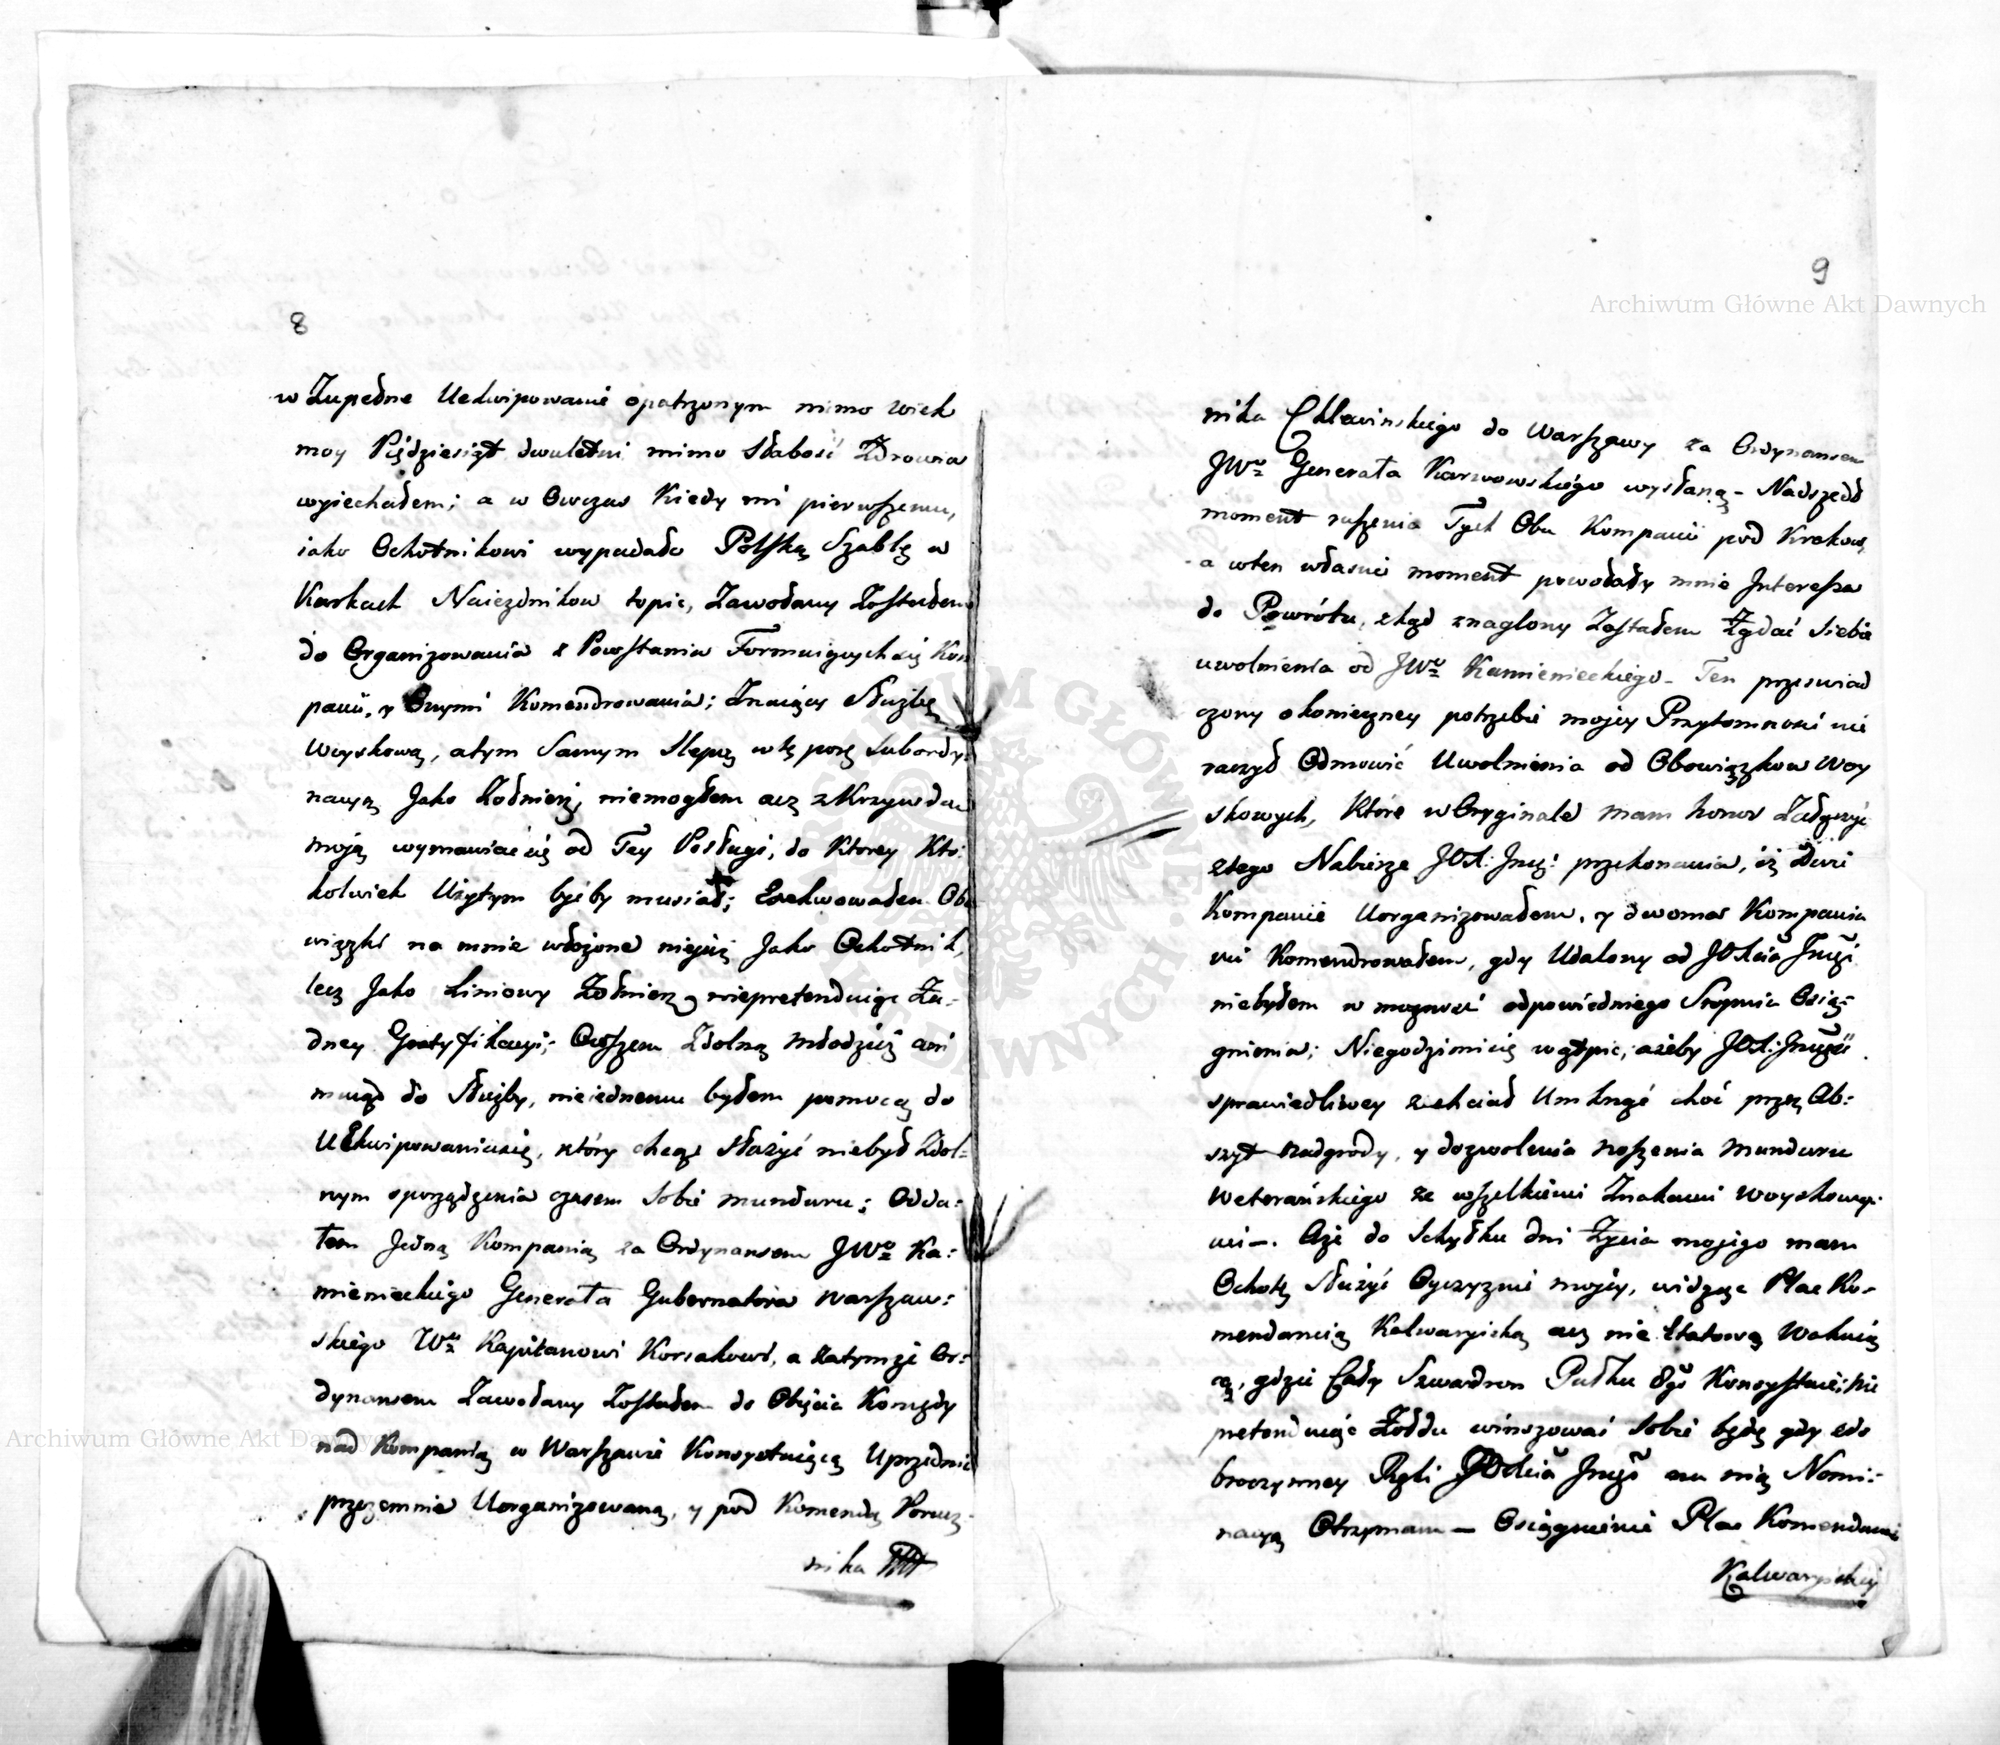 8
w Zupełne Uekwipowanie opatrzonym mimo wiek
moy Pięćdziesiąt dwuletni mimo słabość Zdrowia
wyiechałem; a w Owczas kiedy mi pierwszemu,
iako Ochotnikowi wypadało Polską Szablę w
Karkach Naiezdnikow topić, Zawołany Zostałem
do Organizowania z Powstania Formuiących się Kom
panii, y Onymi Komendrowania; Znaiący Służbę
Woyskową, a tym Samym Slepą w tę porę Subordy:
nacyą Jako Żołnierz, niemogłem acz z Krzywdą
moją wymawiać się od Tey Posługi, do Ktorey Kto:
kolwiek Użytym byćby musiał; Exekwowałem Obo
wiązki na mnie włożone nieiuż Jako Ochotnik,
lecz Jako Liniowy Żołnierz, niepretenduiąc Ża-
dney Gratyfikacyi; Owszem Zdolną młodzież ani
muiąc do Służby, nieiednemu byłem pomocą do
UEkwipowania się, który chcąc służyć niebył Zdol=
nym sporządzenia czasem sobie munduru; Odda:
łem Jedną Kompanią za Ordynansem JWo Ka:
mienieckiego Generała Gubernatora Warszaw:
skiego Wu Kapitanowi Korsakowi, a zatymże Or:
dynansem Zawołany Zostałem do Objęcia Komędy
nad Kompanią w Warszawie Konsystuiącą Uprzednio
przezemnie Uorganizowaną, y pod Komendą Porucz-
nika
9
nika Chlewinskiego do Warszawy za Ordynansem
JWo Generała Karwowskiego wysłaną - Nadszedł
moment ruszenia Tych Obu Kompanii pod Krakow,
a wten właśnie moment powołały mnie Interessa
do Powrótu, zkąd znaglony Zostałem Żądać siebie
uwolnienia od JWo Kamienieckiego - Ten przeswiad
czony o konieczney potrzebie mojey Przytomności nie
raczył Odmówić Uwolnienia od Obowiązkow Woy
skowych, Które w Oryginale mam honor Załączyć
ztego Nabierze JOX: Jmć: przekonania, iż Dwie
Kompanie Uorganizowałem, y dwoma Kompania
mi Komendrowałem, gdy Udalony od JOXcia Jmci
niebyłem w możności odpowiedniego Stopnia Osią:
gnienia; Niegodzi mi się wątpić, ażeby JOX: Jmć
sprawiedliwey zechciał Umknąć choć przez Ab:
szyt nadgrody, y dozwolenia noszenia munduru
Weterańskiego ze wszelkiemi Znakami woyskowy:
mi -. Aże do Schyłku dni Życia mojego mam
Ochotę Służyć Oyczyznie mojey, widząc Plac Ko-
mendancią Kalwaryiską acz nie Etatową Wakuią
cą, gdzie Cały Szwadron Pułku 8go Konsystuie; nie
pretenduiąc Żołdu winszować sobie będę gdy zdo
broczynney Ręki JOXcia Jmci na nią Nomi:
nacyą Otrzymam - Osiągnienie Plac Komendanci
Kalwaryiskiey
Archiwum Główne Akt Dawnych
Archiwum Główne Akt Dawnych
ARCHIWUM GŁÓWNE AKT DAWNYCH